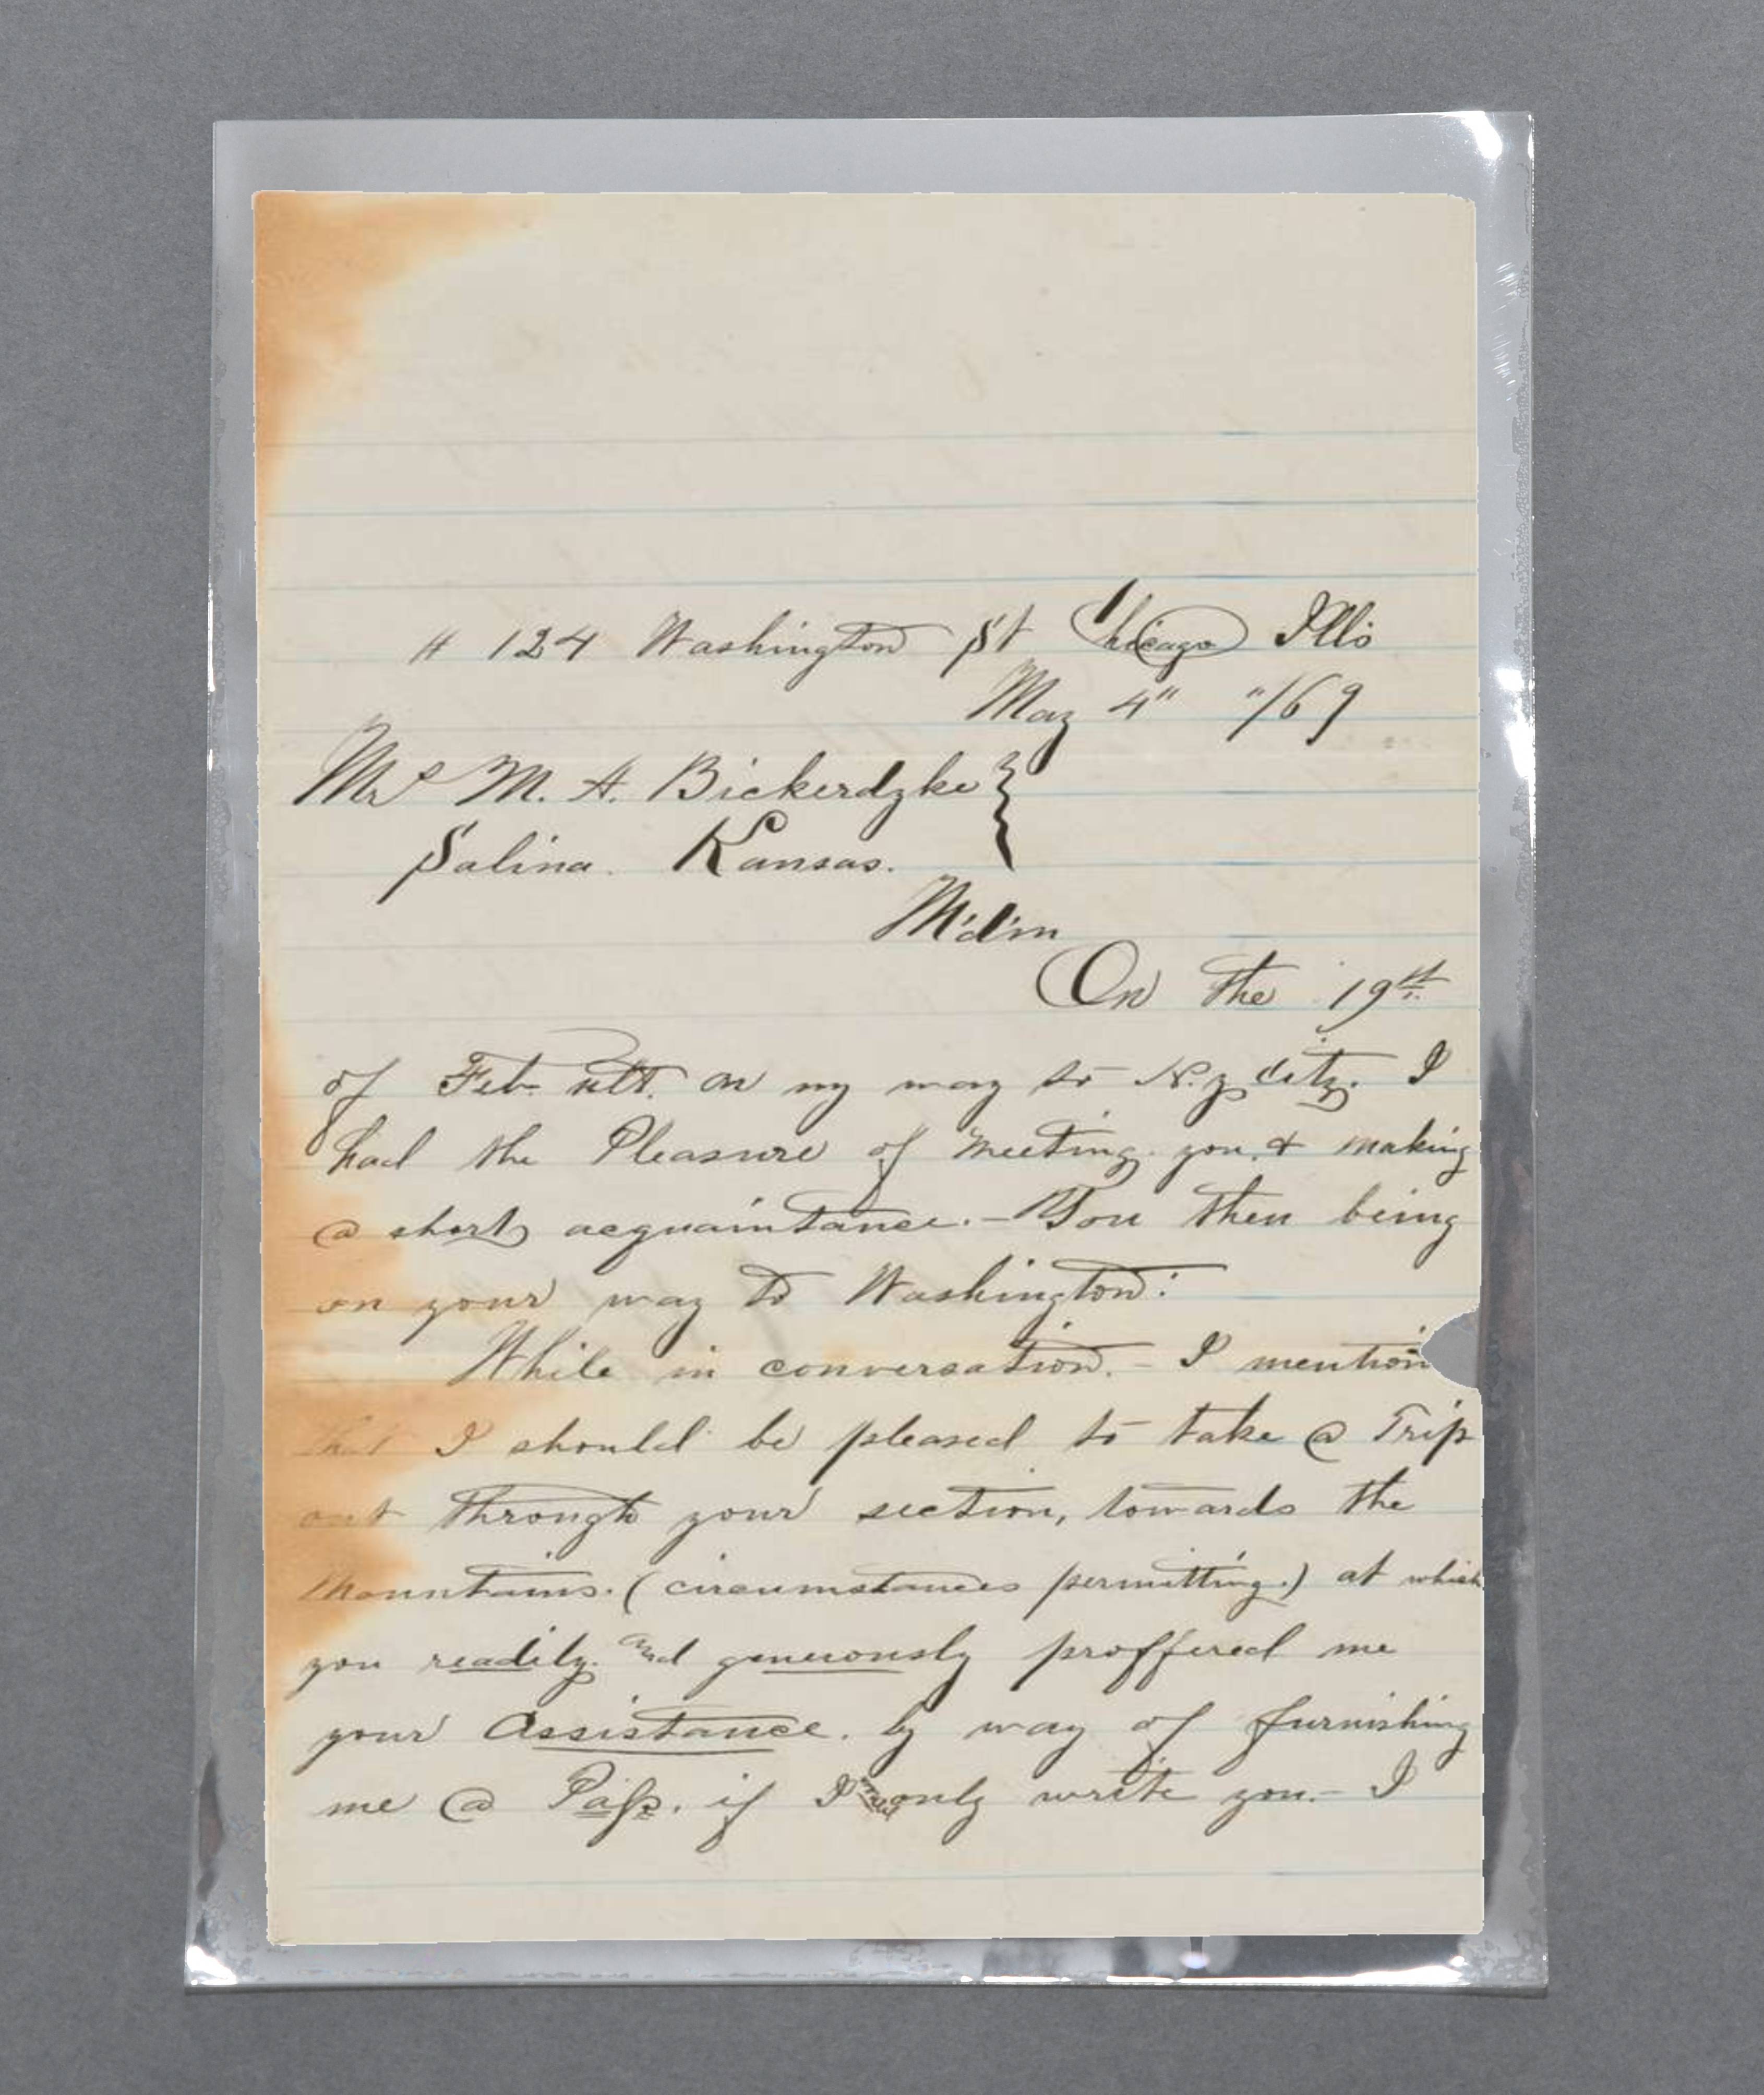 # 124 Washington St Chicago Ills
May 4" "/69
Mrs M. A. Bickerdyke
Salina. Kansas.
M'd'm
On the 19th
of Feb. ult. on my way to N.Y. City. I
had the Pleasure of meeting you, & making
a short acquaintance.- You then being
on your way to Washington:
While in conversation.- I mention
that I should be pleased to take a Trip
out through your section, towards the
Mountains. (circumstances permitting.) at which
you readily. and generously proffered me
your Assistance. by way of furnishing
me a Pass. if I only write you.- I